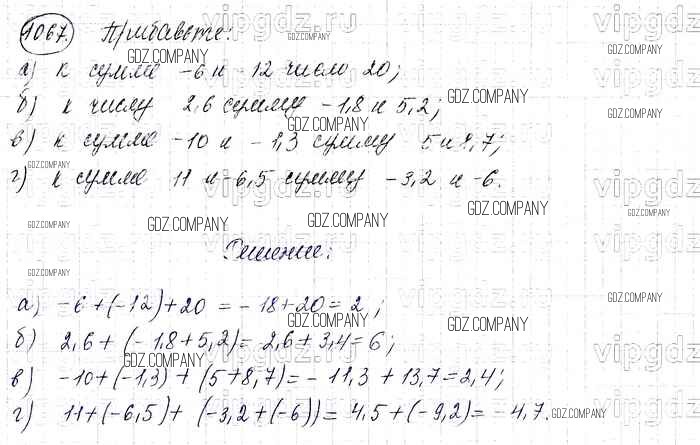 1067. Прибавьте:
а) к сумме -6 и -12 число 20;
б) к числу 2,6 сумму -1,8 и 5,2;
в) к сумме -10 и -1,3 сумму 5 и 8,7;
г) к сумме 11 и -6,5 сумму -3,2 и -6.
Решение:
а) -6+(-12)+20 = -18+20=2;
б) 2,6+(-1,8+5,2)=2,6+3,4=6;
в) -10+(-1,3)+(5+8,7)=-11,3+13,7=2,4;
г) 11+(-6,5)+(-3,2+(-6))=4,5+(-9,2)=-4,7.
GDZ.COMPANY
vipgdz.ru